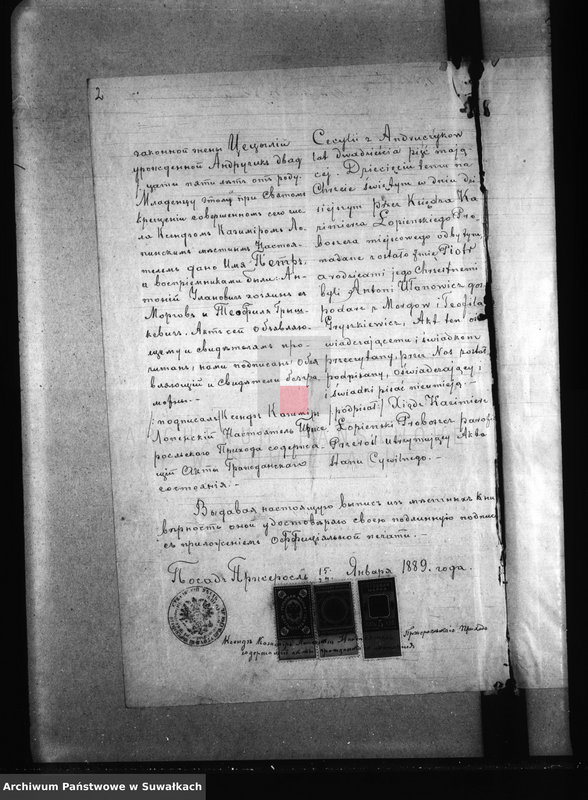 2
законной жены Цецылiи
урожденной Андручикъ двад
цати пяти лѣтъ отъ роду.
Младенцу этому при Святомъ
крещенiи совершенномъ сего чис
ла Ксендзомъ Казимiромъ Ло
пинскимъ мѣстнымъ Настоя-
телемъ дано имя Петръ,
а воспрiемниками были: Ан-
тонiй Улановичъ хозяинъ въ
Морговъ и Теофиля Грыш
кевичъ. Актъ сей объявляю
щему и свидѣтелямъ про
читанъ, нами подписанъ объя
вляющiй и свидѣтели
/подписалъ/ Ксендзъ Казимiръ
Лопенскiй Настоятель Прже
росльского Прихода содержа
щiй Акты Гражданскаго
состоянiя. -
Cecylii z Andruczyków
lat dwadzieścia pięć mają
cej. Dziecięciu temu na
Chrzcie świętym w dniu dzi
siejszym przez Księdza Ka
zimierza Łopienskiego Pro-
boszcza miejscowego odbytym,
nadane zostało Imię Piotr
a rodzicami jego Chrzestnemi
byli Antoni Ułanowicz gos
podarz z Morgow i Teofila
Gryszkiewicz, Akt ten oś
wiadczającemu i świadkom
przeczytany, przez Nas został
podpisany, oświadczający i
i świadki pisać nieumieją. -
/podpisał/ Xiądz Kazimierz
Łopienski Proboszcz parafii
Przerośl utrzymujący Akta
Stanu Cywilnego. -
Выдавая настоящую выпись изъ мѣстныхъ книгъ
вѣрность оной удостовѣряю своею подлинную подпись
съ приложенiемъ оффицiальной печати. -
Посадъ Пржеросль 15/27 Января 1889. года.
Ксендзъ Казимiръ Лопенскiй Наст Пржеросльского Прихода
содержащiй акты гражданскаго состоянiя
Archiwum Państwowe w Suwałkach